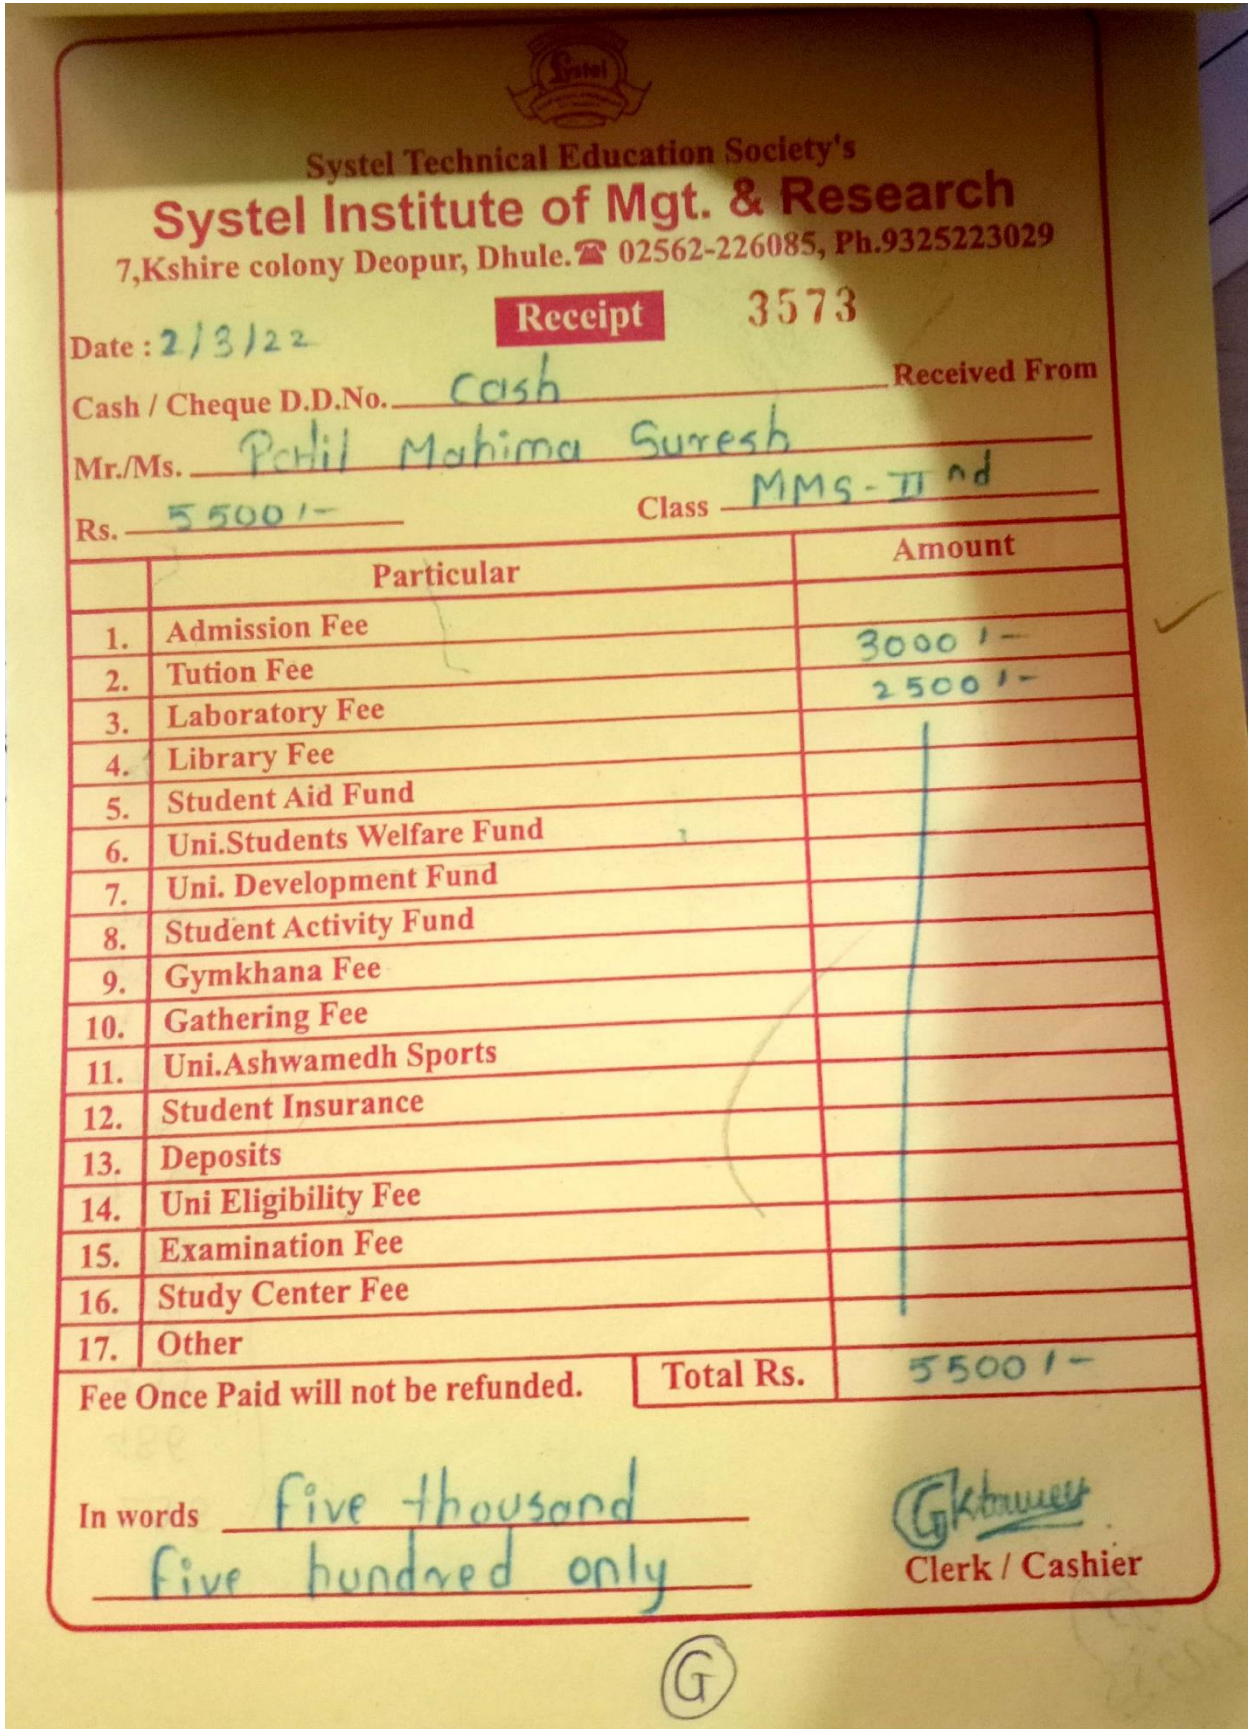 Systel
Systel Technical Education Society's
Systel Institute of Mgt. & Research
7,Kshire colony Deopur, Dhule.☎ 02562-226085, Ph.9325223029
Receipt 3573
Date : 2/3/22
Cash / Cheque D.D.No. Cash Received From
Mr./Ms. Patil Mahima Suresh
Rs. 5500/- Class MMS-II nd
Particular Amount
1. Admission Fee
2. Tution Fee 3000/-
3. Laboratory Fee 2500/-
4. Library Fee
5. Student Aid Fund
6. Uni.Students Welfare Fund
7. Uni. Development Fund
8. Student Activity Fund
9. Gymkhana Fee
10. Gathering Fee
11. Uni.Ashwamedh Sports
12. Student Insurance
13. Deposits
14. Uni Eligibility Fee
15. Examination Fee
16. Study Center Fee
17. Other
Fee Once Paid will not be refunded. Total Rs. 5500/-
In words five thousand
five hundred only
Clerk / Cashier
G